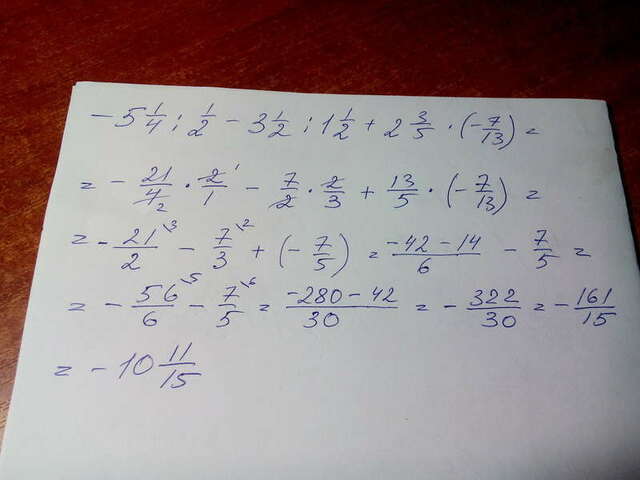 -5 1/4 : 1/2 - 3 1/2 : 1 1/2 + 2 3/5 · (-7/13) =
= - 21/4₂ · 2¹/1 - 7/2 · 2/3 + 13/5 · (-7/13) =
= - 21\3/2 - 7\2/3 + (- 7/5) = -42 - 14/6 - 7/5 =
= - 56\5/6 - 7\6/5 = -280 - 42/30 = - 322/30 = - 161/15
= - 10 11/15